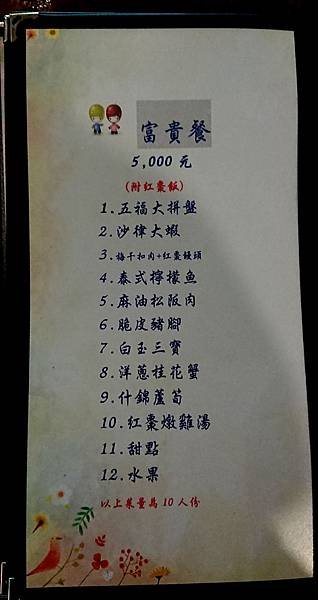 富貴餐
5,000 元
(附紅棗飯)
1.五福大拼盤
2.沙律大蝦
3.梅干扣肉+紅棗饅頭
4.泰式檸檬魚
5.麻油松阪肉
6.脆皮豬腳
7.白玉三寶
8.洋蔥桂花蟹
9.什錦蘆筍
10.紅棗燉雞湯
11.甜點
12.水果
以上菜量為 10 人份